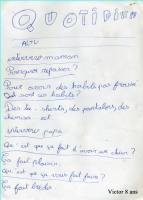 QUOTIDIEN
ACTU
interview maman
Pourquoi repasser?
Pour avoir des habits pas
sont ces habits?
Des te-shorts, des pantalons, des
chemises
interview papa
Qu'est-ce que ça fait d'avoir un chien?
Ça fait plaisir.
Qu'est-ce que vous fait faire?
Ça fait
Victor 8 ans